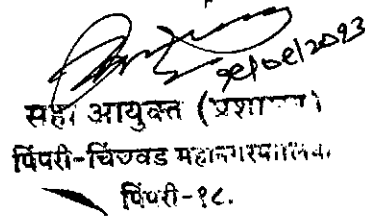 सहा आयुक्त (प्रशासन)
पिंपरी-चिंचवड महानगरपालिका.
पिंपरी-१८.